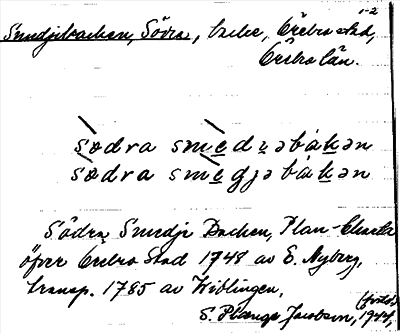 1-2
Smedjebacken, Södra, backe, Örebro stad,
Örebro län.
södra smedɩəbákən
södra smegjəbákən
Södra Smidje Backen, Plan-Charta
öfver Örebro Stad 1748 av E. Nyberg,
transp. 1785 av Kihlingen.
S. Plange Jacobson, 1944,